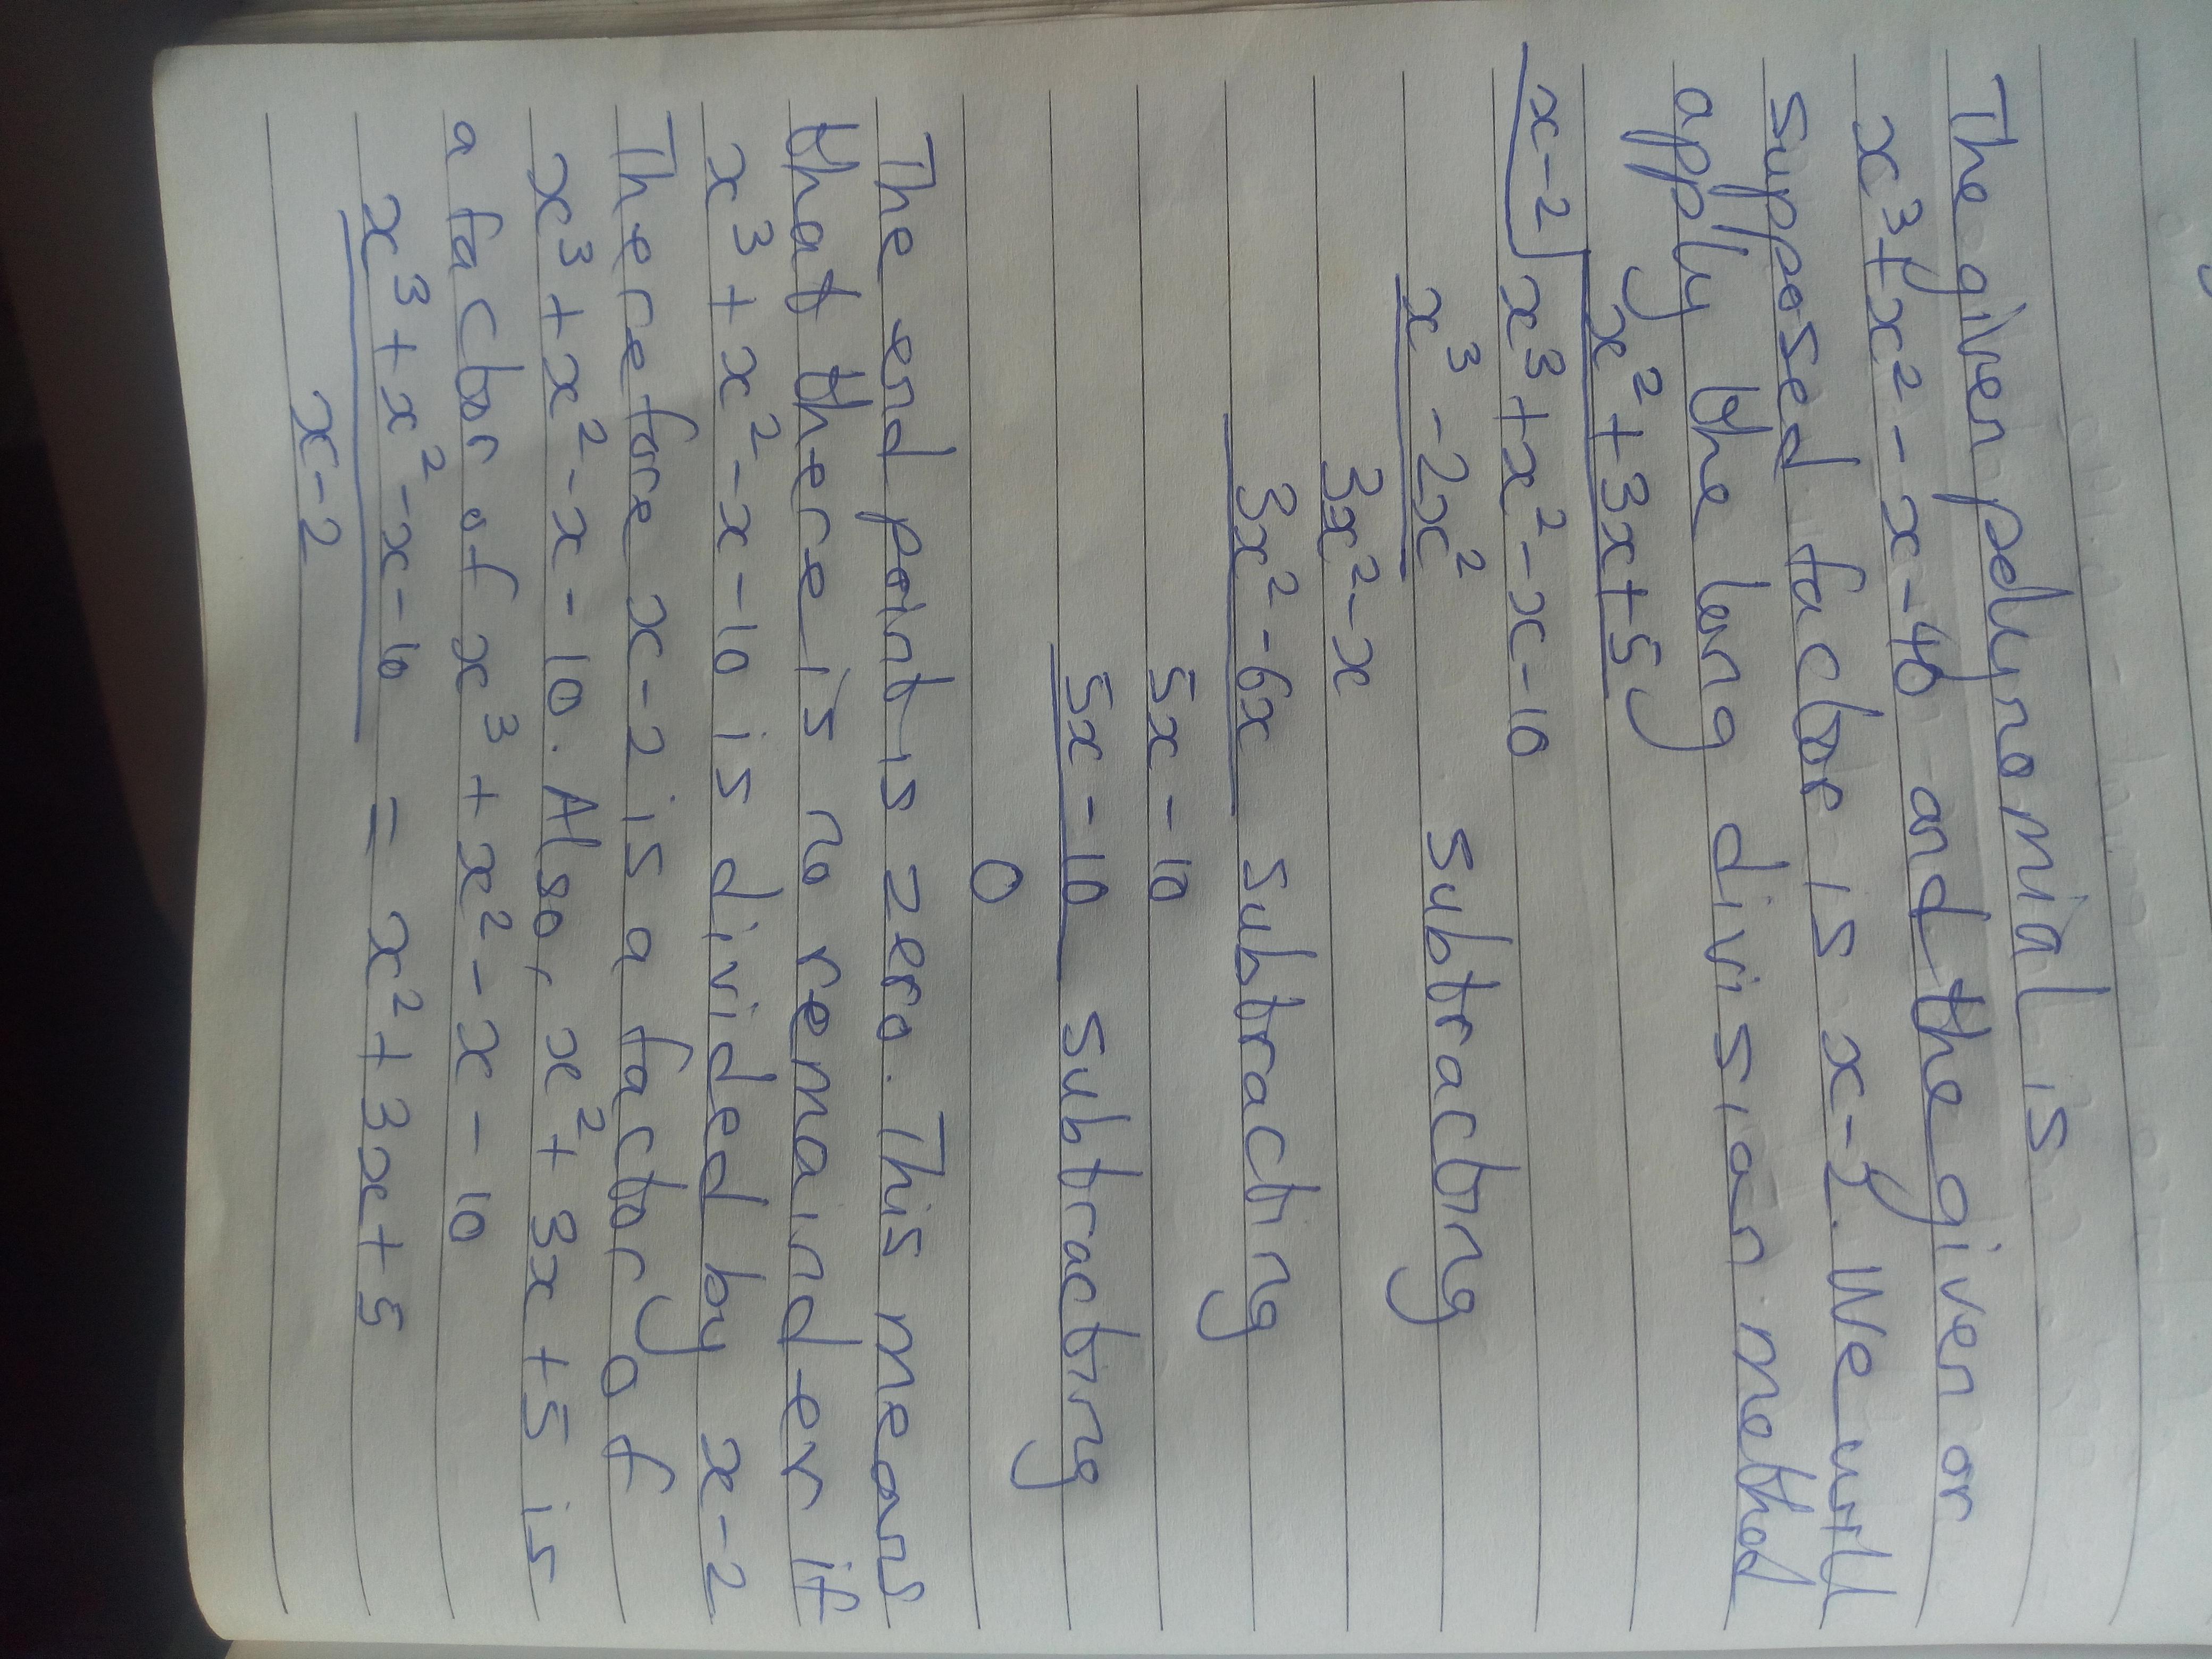 The given polynomial is
x³+x²-x-10 and the given or
supposed factor is x-2. We will
apply the long division method
x²+3x+5
x-2 x³+x²-x-10
x³-2x² subtracting
3x²-x
3x²-6x subtracting
5x-10
5x-10 subtracting
0
The end point is zero. This means
that there is no remainder if
x³+x²-x-10 is divided by x-2
Therefore x-2 is a factor of
x³+x²-x-10. Also, x²+3x+5 is
a factor of x³+x²-x-10
x³+x²-x-10 = x²+3x+5
x-2